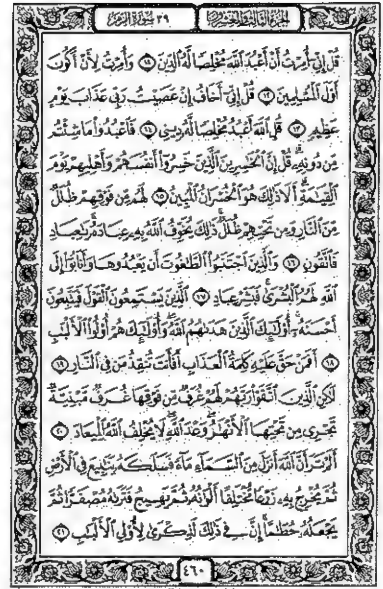 الجزء الثالث والعشرون
٣٩ سورة الزمر
قُلْ إِنِّىٓ أُمِرْتُ أَنْ أَعْبُدَ ٱللَّهَ مُخْلِصًا لَّهُ ٱلدِّينَ ١١ وَأُمِرْتُ لِأَنْ أَكُونَ
أَوَّلَ ٱلْمُسْلِمِينَ ١٢ قُلْ إِنِّىٓ أَخَافُ إِنْ عَصَيْتُ رَبِّى عَذَابَ يَوْمٍ
عَظِيمٍ ١٣ قُلِ ٱللَّهَ أَعْبُدُ مُخْلِصًا لَّهُۥ دِينِى ١٤ فَٱعْبُدُوا۟ مَا شِئْتُم
مِّن دُونِهِۦ قُلْ إِنَّ ٱلْخَٰسِرِينَ ٱلَّذِينَ خَسِرُوٓا۟ أَنفُسَهُمْ وَأَهْلِيهِمْ يَوْمَ
ٱلْقِيَٰمَةِ أَلَا ذَٰلِكَ هُوَ ٱلْخُسْرَانُ ٱلْمُبِينُ ١٥ لَهُم مِّن فَوْقِهِمْ ظُلَلٌ
مِّنَ ٱلنَّارِ وَمِن تَحْتِهِمْ ظُلَلٌ ذَٰلِكَ يُخَوِّفُ ٱللَّهُ بِهِۦ عِبَادَهُۥ يَٰعِبَادِ
فَٱتَّقُونِ ١٦ وَٱلَّذِينَ ٱجْتَنَبُوا۟ ٱلطَّٰغُوتَ أَن يَعْبُدُوهَا وَأَنَابُوٓا۟ إِلَى
ٱللَّهِ لَهُمُ ٱلْبُشْرَىٰ فَبَشِّرْ عِبَادِ ١٧ ٱلَّذِينَ يَسْتَمِعُونَ ٱلْقَوْلَ فَيَتَّبِعُونَ
أَحْسَنَهُۥٓ أُو۟لَٰٓئِكَ ٱلَّذِينَ هَدَىٰهُمُ ٱللَّهُ وَأُو۟لَٰٓئِكَ هُمْ أُو۟لُوا۟ ٱلْأَلْبَٰبِ
١٨ أَفَمَنْ حَقَّ عَلَيْهِ كَلِمَةُ ٱلْعَذَابِ أَفَأَنتَ تُنقِذُ مَن فِى ٱلنَّارِ ١٩
لَٰكِنِ ٱلَّذِينَ ٱتَّقَوْا۟ رَبَّهُمْ لَهُمْ غُرَفٌ مِّن فَوْقِهَا غُرَفٌ مَّبْنِيَّةٌ
تَجْرِى مِن تَحْتِهَا ٱلْأَنْهَٰرُ وَعْدَ ٱللَّهِ لَا يُخْلِفُ ٱللَّهُ ٱلْمِيعَادَ ٢٠
أَلَمْ تَرَ أَنَّ ٱللَّهَ أَنزَلَ مِنَ ٱلسَّمَآءِ مَآءً فَسَلَكَهُۥ يَنَٰبِيعَ فِى ٱلْأَرْضِ
ثُمَّ يُخْرِجُ بِهِۦ زَرْعًا مُّخْتَلِفًا أَلْوَٰنُهُۥ ثُمَّ يَهِيجُ فَتَرَىٰهُ مُصْفَرًّا ثُمَّ
يَجْعَلُهُۥ حُطَٰمًا إِنَّ فِى ذَٰلِكَ لَذِكْرَىٰ لِأُو۟لِى ٱلْأَلْبَٰبِ ٢١
٤٦٠